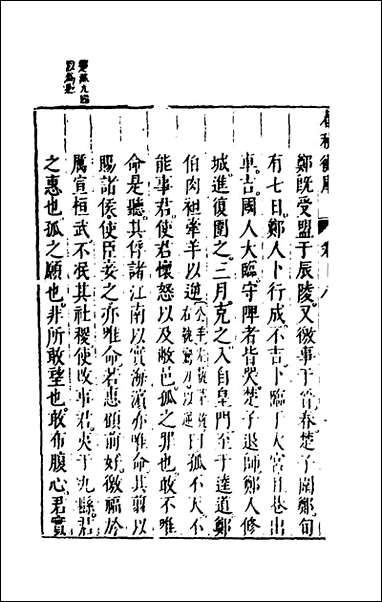 楚滅九國
以爲縣
春秋衡庫
卷十八
鄭既受盟于辰陵又徼事于晉春楚子圍鄭旬
有七日鄭人卜行成不吉卜臨于大宮且巷出
車吉國人大臨守陴者皆哭楚子退師鄭人修
城進復圍之三月克之入自皇門至于逵道鄭
伯肉袒牽羊以逆曰孤不天不
能事君使君懷怒以及敝邑孤之罪也敢不唯
命是聽其俘諸江南以實海濱亦唯命其翦以
賜諸侯使臣妾之亦唯命若惠顧前好徼福於
厲宣桓武不泯其社稷使改事君夷于九縣君
之惠也孤之願也非所敢望也敢布腹心君實